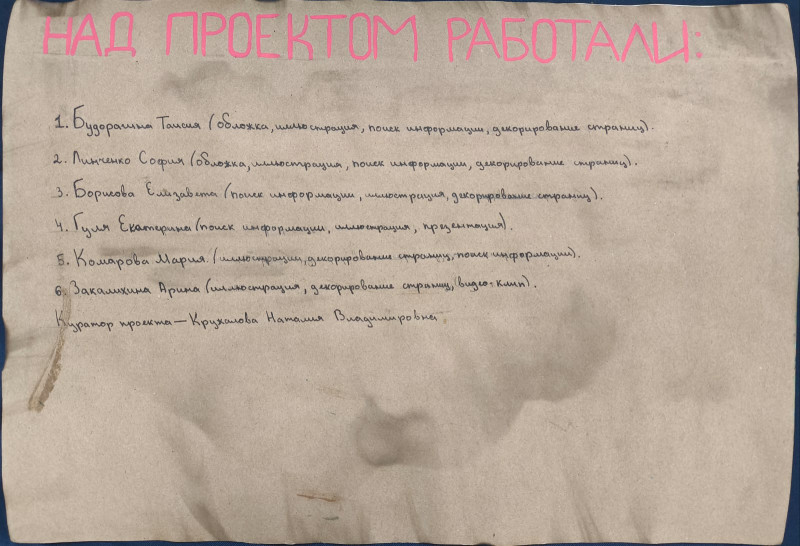 НАД ПРОЕКТОМ РАБОТАЛИ:
1. Будорагина Таисия (обложка, иллюстрация, поиск информации, декорирование страниц).
2. Линченко София (обложка, иллюстрация, поиск информации, декорирование страниц).
3. Борисова Елизавета (поиск информации, иллюстрация, декорирование страниц).
4. Гуля Екатерина (поиск информации, иллюстрация, презентация).
5. Комарова Мария (иллюстрации, декорирование страниц, поиск информации).
6. Закалихина Арина (иллюстрация, декорирование страниц, видео-клип).
Куратор проекта — Крухалова Наталия Владимировна